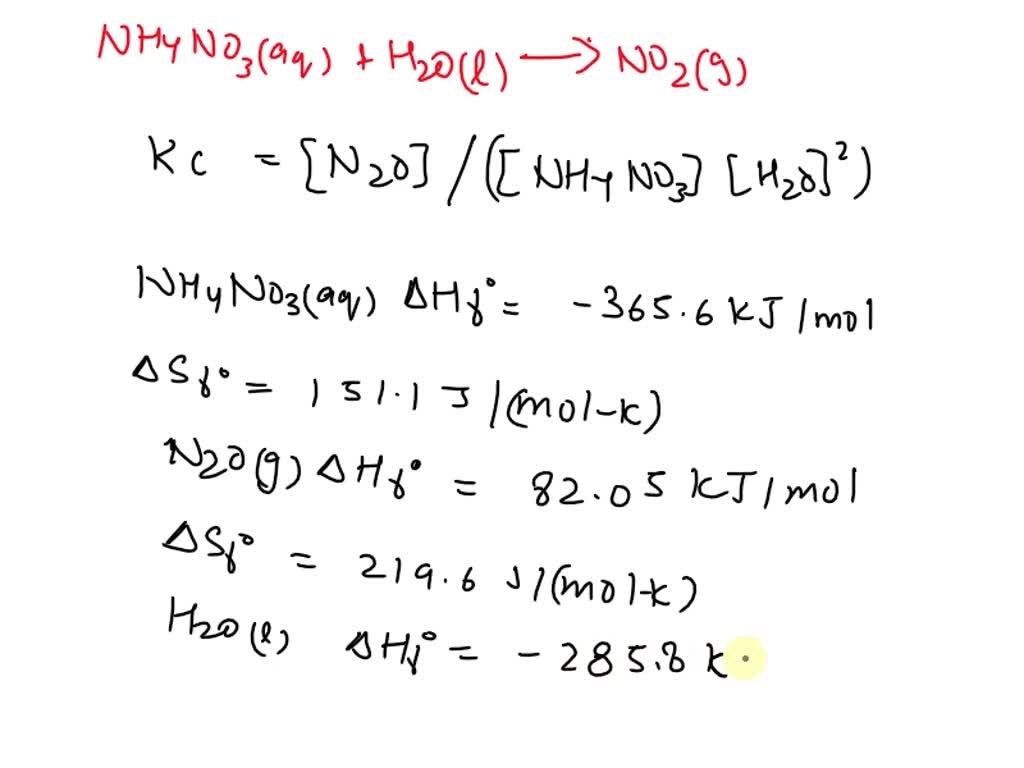 NH4NO3(aq) + H2O(l) → NO2(g)
Kc = [N2O] / ([NH4NO3] [H2O]²)
NH4NO3(aq) ΔHf° = -365.6 KJ/mol
ΔSf° = 151.1 J/(mol-K)
N2O(g) ΔHf° = 82.05 KJ/mol
ΔSf° = 219.6 J/(mol-K)
H2O(l) ΔHf° = -285.8 K